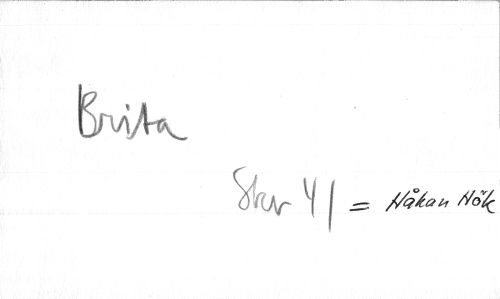 Brita
Skr 41 = Håkan Hök